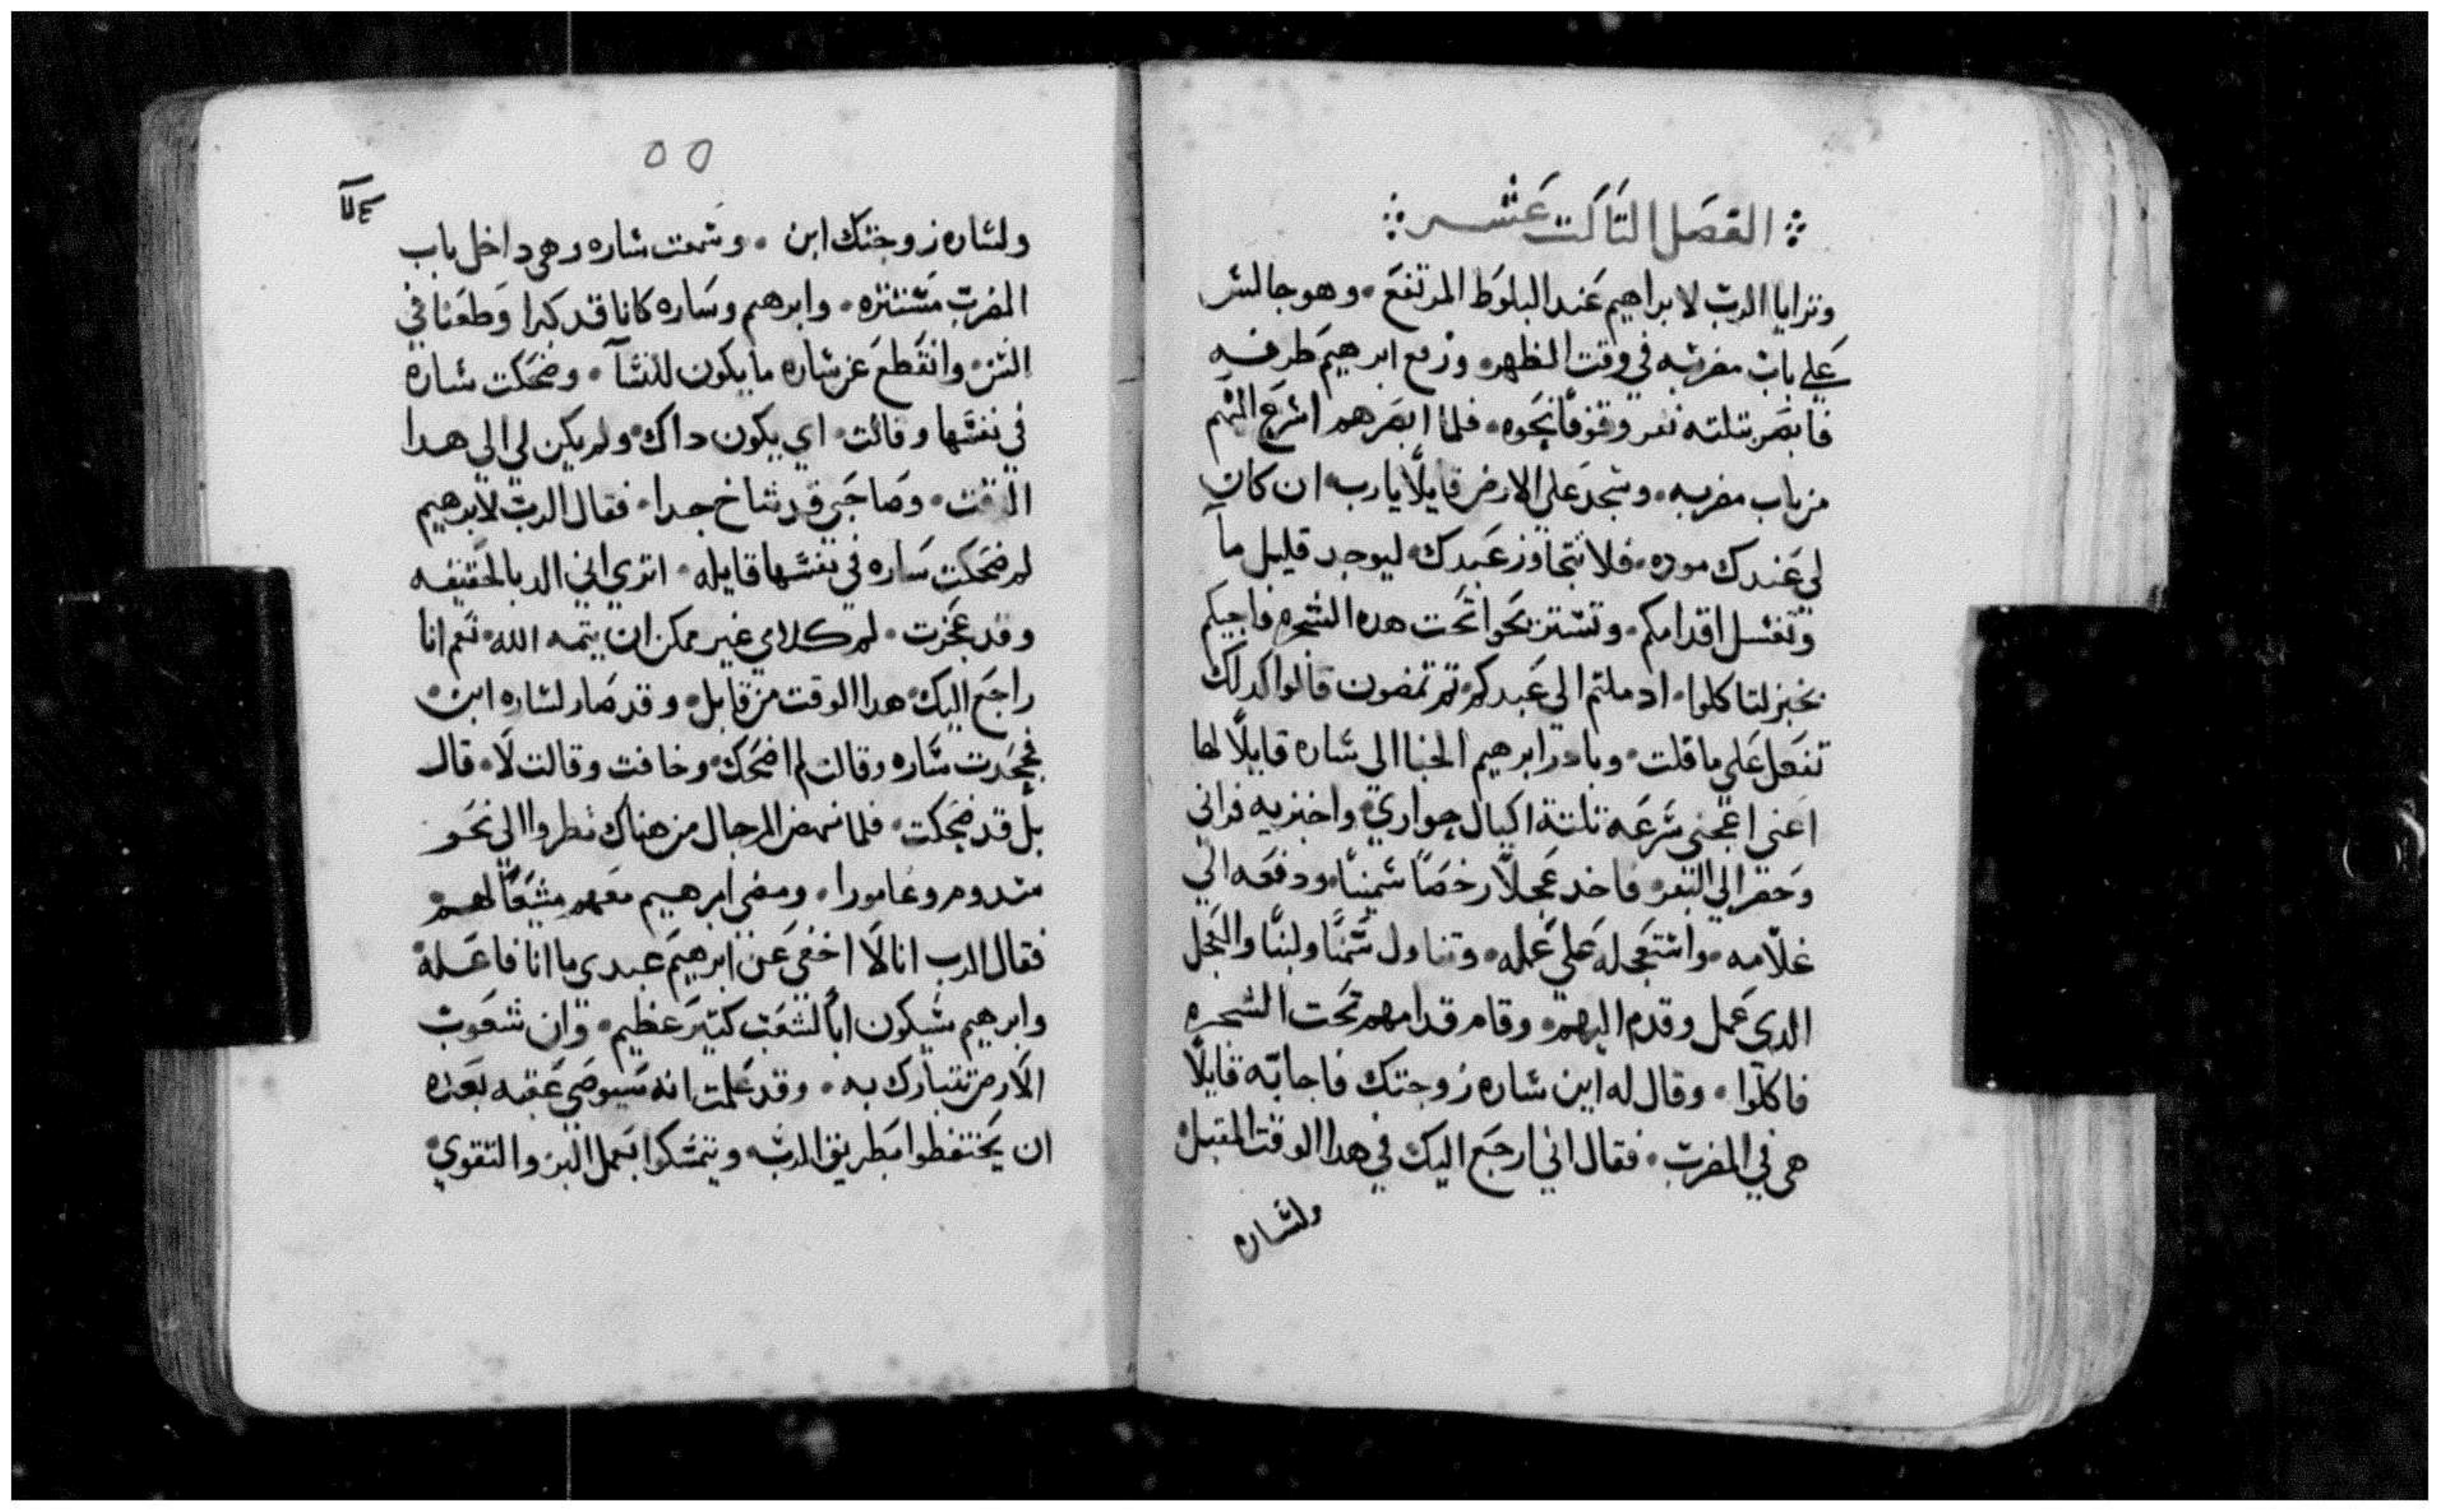 الفصَل التَالَت عَشر
وترايا الرب لابراهيم عَند البلوَط المرتفعَ. وهو جالسَ
عَلي باب مضربه في وقت الظهر. ورفع ابرهيم طرفه
فابصَر تلته نفر وقوفاً نحَوه. فلما ابصَرهم اسَرع اليهم
من باب مضربه. وسَجد عَلي الارض قايلاً يارب ان كان
لي عَندك موده. فلا تتجاوز عَبدك. ليوجد قليل مآ
وتغسَل اقدامكم. وتستريحَوا تحَت هده الشجره فاجيكم
بخبز لتاكلوا. اد ملتم الي عَبدكم. تم تمضون قالوا كدلك
نفعَل عَلي ما قلت. وبادر ابرهيم الخبا الي سَاره قايلاً لها
اعَني اعَجني سَرعَه تلتة اكيال حواري واخبزيه فراني
وَحضر الي البقر فاخد عَجلاً رخصَاً سَميناً. ودفعَه الي
غلامه. واستعَجله عَلي عَمله. وتناول سَمناً ولبناً والعَجل
الدي عَمل وقدم اليهم. وقام قدامهم تحَت الشجره
فاكلوا. وقال له اين سَاره زوجتك فاجابه قايلاً
هي في المضرب. فقال اني ارجعَ اليك في هدا الوقت المقبل
ولسَاره
٥٥
ولسَاره زوجتك ابن. وسَمعَت سَاره وهي داخل باب
المضرب مسَتتره. وابرهيم وسَاره كانا قد كبرا وَطعَنا في
السَن. وانقطعَ عن سَاره ما يكون للنسَآ. وضحَكت سَاره
في نفسَها وقالت. اي يكون داك ولم يكن لي الي هدا
الوقت. وصَاحَبي قد شاخ جدا. فقال الرب لابرهيم
لم ضحَكت سَاره في نفسَها قايله. اتري اني الد بالحَقيقه
وقد عَجزت. لم كلامي غير ممكن ان يتمه الله. نعَم انا
راجعَ اليك هدا الوقت من قابل. وقد صَار لسَاره ابن
فجحَدت سَاره وقالت لم اضحَك وخافت وقالت لا. قال
بل قد ضحَكت. فلما نهض الرجال من هناك نطروا الي نحَو
سَدوم وعَامورا. ومضي ابرهيم معَهم مشيعَاً لهم
فقال الرب انا لا اخفي عَن ابرهيم عَبدي ما انا فاعَله
وابرهيم سَيكون اباً لشعَب كتير عَظيم. وان شعَوب
الارض تتبارك به. وقد عَلمت انه سَيوصَي عَقبه بعَده
ان يحَتفظوا بطريق الرب. ويتمسَكوا بعَمل البر والتقوي